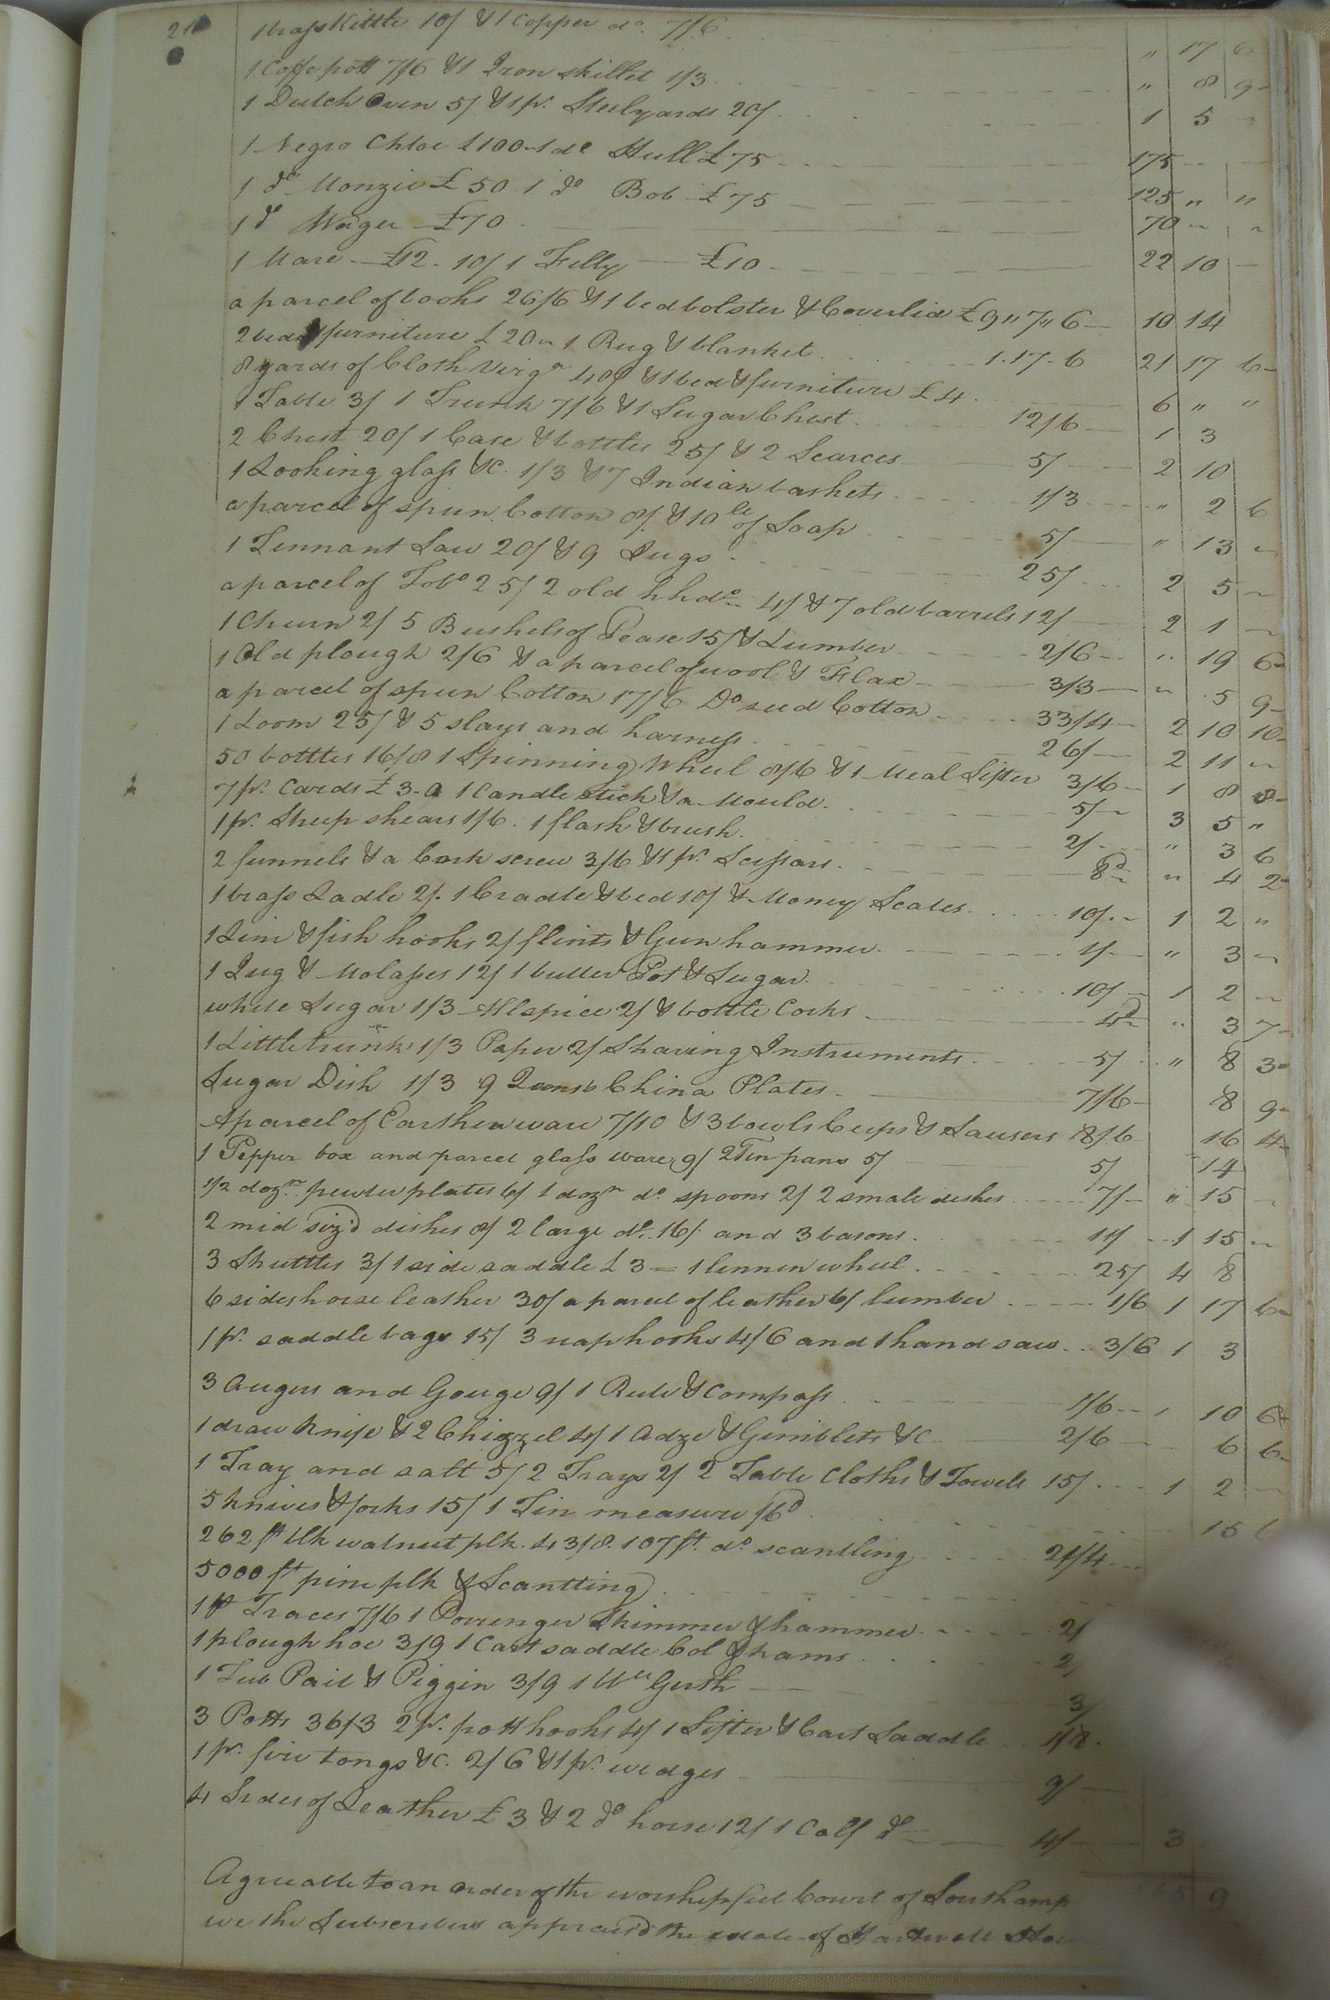 21
1 brass Kittle 10/ & 1 Copper do. 7/6 " 17 6
1 Coffe pott 7/6 & 1 Iron skillet 1/3 " 8 9
1 Dutch Oven 5/ & 1 pr. Steelyards 20/ 1 5 -
1 Negro Chloe £100 - 1 do Hull £75 175 - -
1 do Monzie £50 1 do Bob £75 125 " "
1 do Wager £70 70 - -
1 Mare £12.10/ 1 Filly £10 22 10 -
a parcel of books 26/6 & 1 bed bolster & Coverlid £9"7"6 10 14
2 beds & furniture £20 - 1 Rug & blanket 1.17.6 21 17 6
8 yards of Cloth Virga 40/ & 1 bed & furniture £4 6 " "
1 Table 3/ 1 Trunk 7/6 & 1 Sugar Chest 12/6 1 3
2 Chest 20/ 1 Case & bottles 25/ & 2 Searces 5/ 2 10
1 Looking glass &c. 1/3 & 7 Indian baskets 1/3 " 2 6
a parcel of spun Cotton 8/ & 10 lb of Soap 5/ " 13 -
1 Tennant Saw 20/ & 9 Jugs 25/ 2 5 -
a parcel of Tobo 25/ 2 old hhds 4/ & 7 old barrels 12/ 2 1 -
1 Churn 2/ 5 Bushels of Pease 15/ & Lumber 2/6 " 19 6
1 Old plough 2/6 & a parcel of wool & Flax 3/3 " 5 9
a parcel of spun Cotton 17/6 Do seed Cotton 33/4 2 10 10
1 Loom 25/ & 5 slays and harness 26/ 2 11 -
50 bottles 16/8 1 Spinning Wheel 8/6 & 1 Meal Sifter 3/6 1 8 8
7 pr. Cards £3 - 1 Candle stick & a Mould 5/ 3 5 "
1 pr. Sheep shears 1/6. 1 flask & brush 2/ " 3 6
2 funnels & a Cork screw 3/6 & 1 pr. Scissars 8d " 4 2
1 brass Ladle 2/. 1 Cradle & bed 10/ & Money Scales 10/ 1 2 "
1 Line & fish hooks 2/ flints & Gun hammer 1/ " 3 -
1 Jug & Molasses 12/ 1 butter Pot & Sugar 10/ 1 2 -
white Sugar 1/3 Allspice 2/ & bottle Corks 4d " 3 7
1 Little trunk 1/3 Paper 2/ Shaving Instruments 5/ " 8 3
Sugar Dish 1/3 9 China Plates 7/6 8 9
A parcel of Earthenware 7/10 & 3 bowls Cups & Sausers 8/6 16 4
1 Pepper box and parcel glass ware 9/ 2 Tin pans 5/ 5/ 14
1/2 dozn pewter plates 6/ 1 dozn do. spoons 2/ 2 small dishes 7/ " 15 -
2 mid siz'd dishes 8/ 2 large do. 16/ and 3 basons 11/ 1 15 -
3 Shuttles 3/ 1 side saddle £3 - 1 linnen wheel 25/ 4 8
6 sides horse leather 30/ a parcel of leather 6/ lumber 1/6 1 17 6
1 pr. saddle bags 15/ 3 reaphooks 4/6 and 1 hand saw 3/6 1 3
3 Augers and Gouge 9/ 1 Rule & Compass 1/6 10 6
1 draw knife & 2 Chizzel 4/ 1 Adze & Gimblets &c 2/6 6 6
1 Tray and salt 5/ 2 Trays 2/ 2 Table Cloths & Towels 15/ 1 2 -
5 knives & forks 15/ 1 Tin measure /6d 15 6
262 ft blk walnut plk. 43/8. 107 ft. do scantling 21/4
5000 ft pine plk & Scantling
1 pr Traces 7/6 1 Porrenger Skimmer & hammer 2/
1 plough hoe 3/9 1 Cart saddle Col & hams 2/
1 Tub Pail & Piggin 3/9 1 Girth 3/
3 Potts 36/3 2 pr. pott hooks 4/ 1 Sifter & Cart Saddle 1/8
1 pr. fire tongs &c. 2/6 & 1 pr. wedges 9/
4 Sides of Leather £3 & 2 do horse 12/ 1 Calf do 4/ 3
9
Agreeable to an order of the worshipful Court of Southamp
we the Subscribers appraisd the estate of